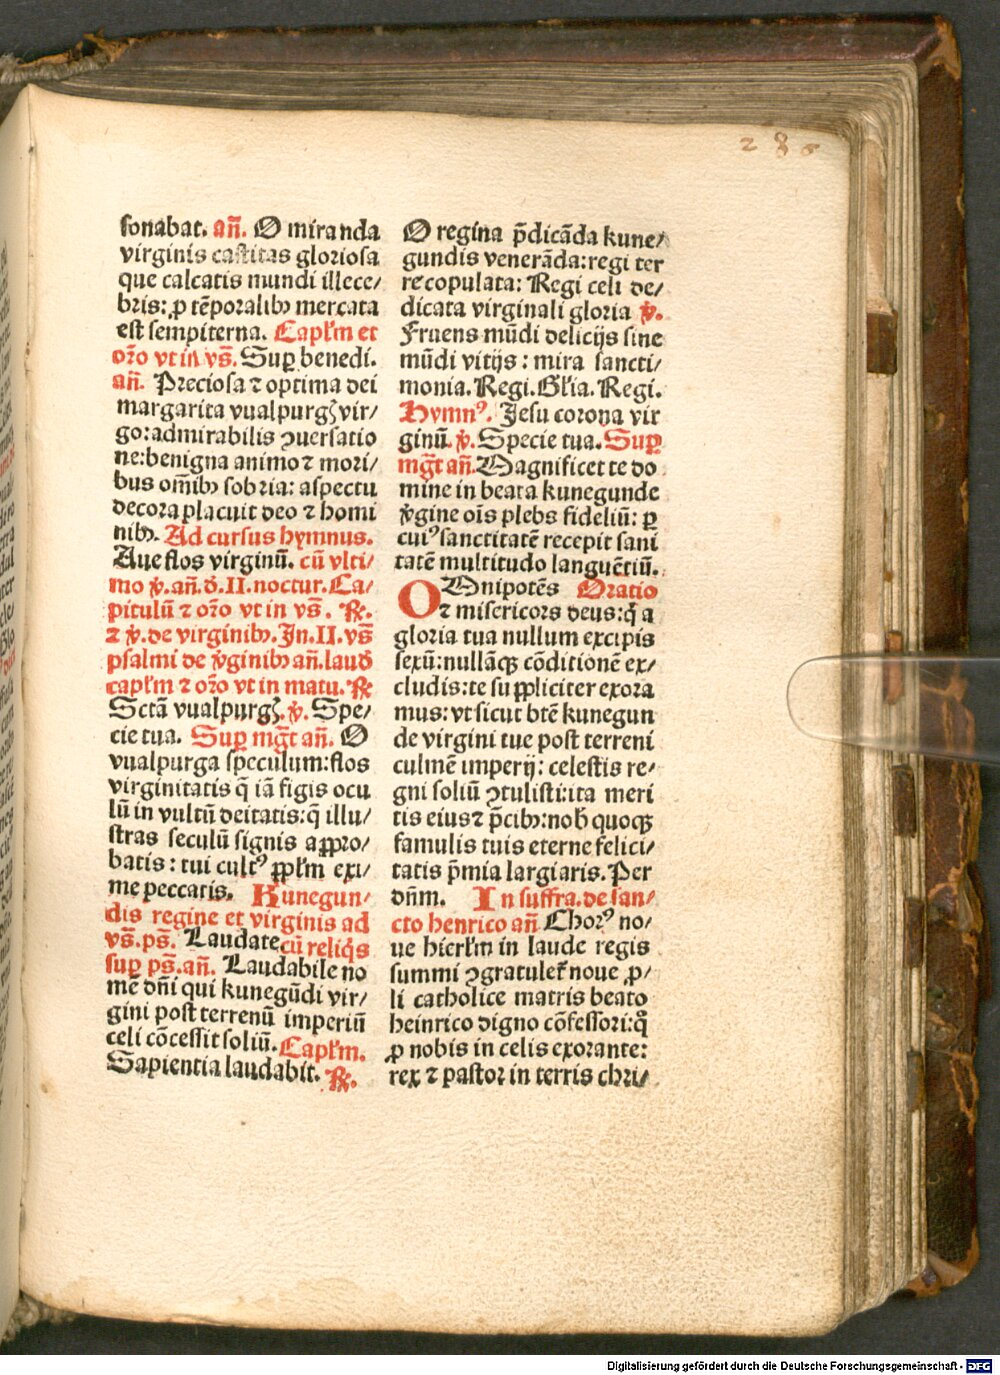 286
sonabat. añ. O miranda
virginis castitas gloriosa
que calcatis mundi illece/
bris: ꝓ tēporalibꝫ mercata
est sempiterna. Capl'm et
oro vt in vs̄. Suꝑ benedi.
añ. Preciosa ⁊ optima dei
margarita vualpurgꝫ vir/
go: admirabilis ꝯuersatio
ne: benigna animo ⁊ mori/
bus om̄ibꝫ sobria: aspectu
decora placuit deo ⁊ homi
nibꝫ. Ad cursus hymnus.
Aue flos virginū. cū vlti/
mo v̄. añ. d̄. II. noctur. Ca/
pitulū ⁊ oro vt in vs̄. ℟.
⁊ v̄. de virginibꝫ. In. II. vs̄
psalmi de v̄ginibꝫ añ. laud̄
capl'm ⁊ oro vt in matu. ℟
Sctā vualpurgꝫ. v̄. Spe/
cie tua. Suꝑ mgt̄ añ. O
vualpurga speculum: flos
virginitatis q̄ iā figis ocu
lū in vultū deitatis: q̄ illu/
stras seculū signis aꝓpro/
batis: tui cultꝰ ꝓpl'm exi/
me peccatis. Kunegun/
dis regine et virginis ad
vs̄. ps̄. Laudate cū reliq̄s
suꝑ ps̄. añ. Laudabile no
mē dñi qui kunegūdi vir/
gini post terrenū imperiū
celi cōcessit soliū. Capl'm.
Sapientia laudabit. ℟.
O regina p̄dicāda kune/
gundis venerāda: regi ter
re copulata: Regi celi de/
dicata virginali gloria v̄.
Fruens mūdi delicijs sine
mūdi vitijs: mira sancti/
monia. Regi. Gl'ia. Regi.
Hymnꝰ. Jesu corona vir
ginū. v̄. Specie tua. Suꝑ
mgt̄ añ. Magnificet te do
mine in beata kunegunde
v̄gine ois plebs fideliū: ꝑ
cuiꝰ sanctitatē recepit sani
tatē multitudo languētiū.
OMnipotēs Oratio
⁊ misericors deus: q̄ a
gloria tua nullum excipis
sexū: nullāqꝫ cōditionē ex/
cludis: te suppliciter exora
mus: vt sicut btē kunegun
de virgini tue post terreni
culmē imperij: celestis re/
gni soliū ꝯtulisti: ita meri
tis eius ⁊ p̄cibꝫ: nob̄ quoqꝫ
famulis tuis eterne felici/
tatis p̄mia largiaris. Per
dñm. In suffra. de san/
cto henrico añ Chorꝰ no/
ue hierl'm in laude regis
summi ꝯgratulet' noue ꝓ/
li catholice matris beato
heinrico digno cōfessori: q̄
ꝓ nobis in celis exorante:
rex ⁊ pastor in terris chri/
Digitalisierung gefördert durch die Deutsche Forschungsgemeinschaft - DFG